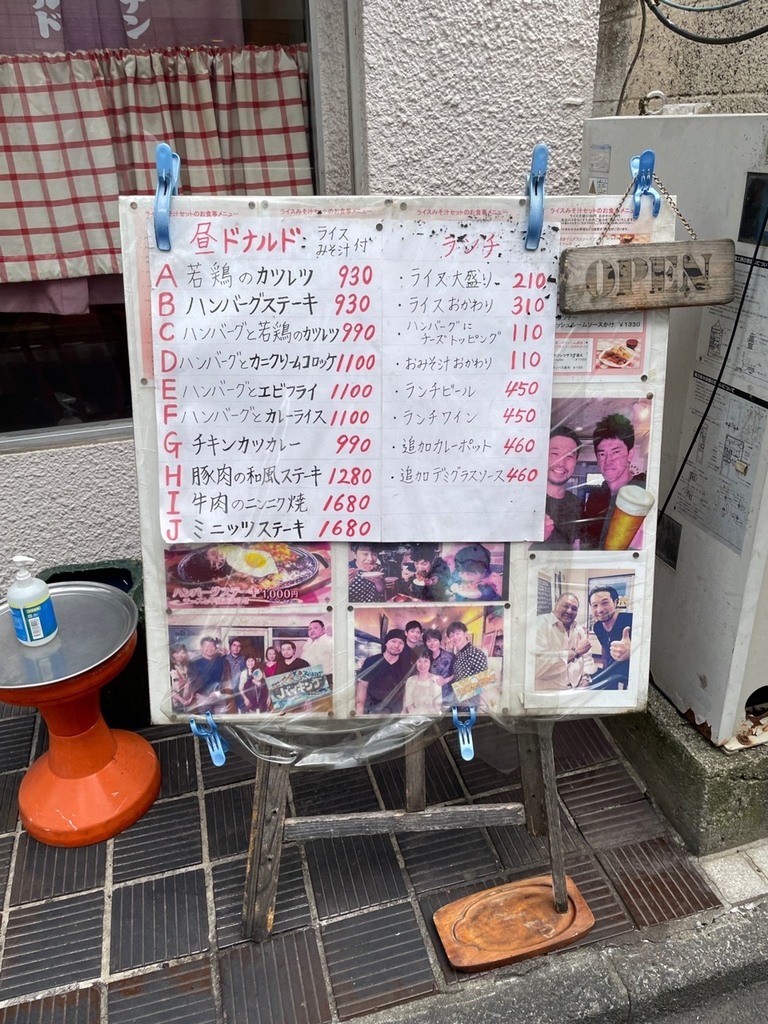 ライスみそ汁セットのお食事メニュー
ライスみそ汁セットのお食事メニュー
昼ドナルド:ライスみそ汁付
A 若鶏のカツレツ 930
B ハンバーグステーキ 930
C ハンバーグと若鶏のカツレツ 990
D ハンバーグとカニクリームコロッケ 1100
E ハンバーグとエビフライ 1100
F ハンバーグとカレーライス 1100
G チキンカツカレー 990
H 豚肉の和風ステーキ 1280
I 牛肉のニンニク焼 1680
J ミニッツステーキ 1680
ランチ
・ライス大盛り 210
・ライスおかわり 310
・ハンバーグに
チーズトッピング 110
・おみそ汁おかわり 110
・ランチビール 450
・ランチワイン 450
・追加カレーポット 460
・追加デミグラスソース 460
OPEN
¥1330
ハンバーグステーキ 1,000円
バイキング